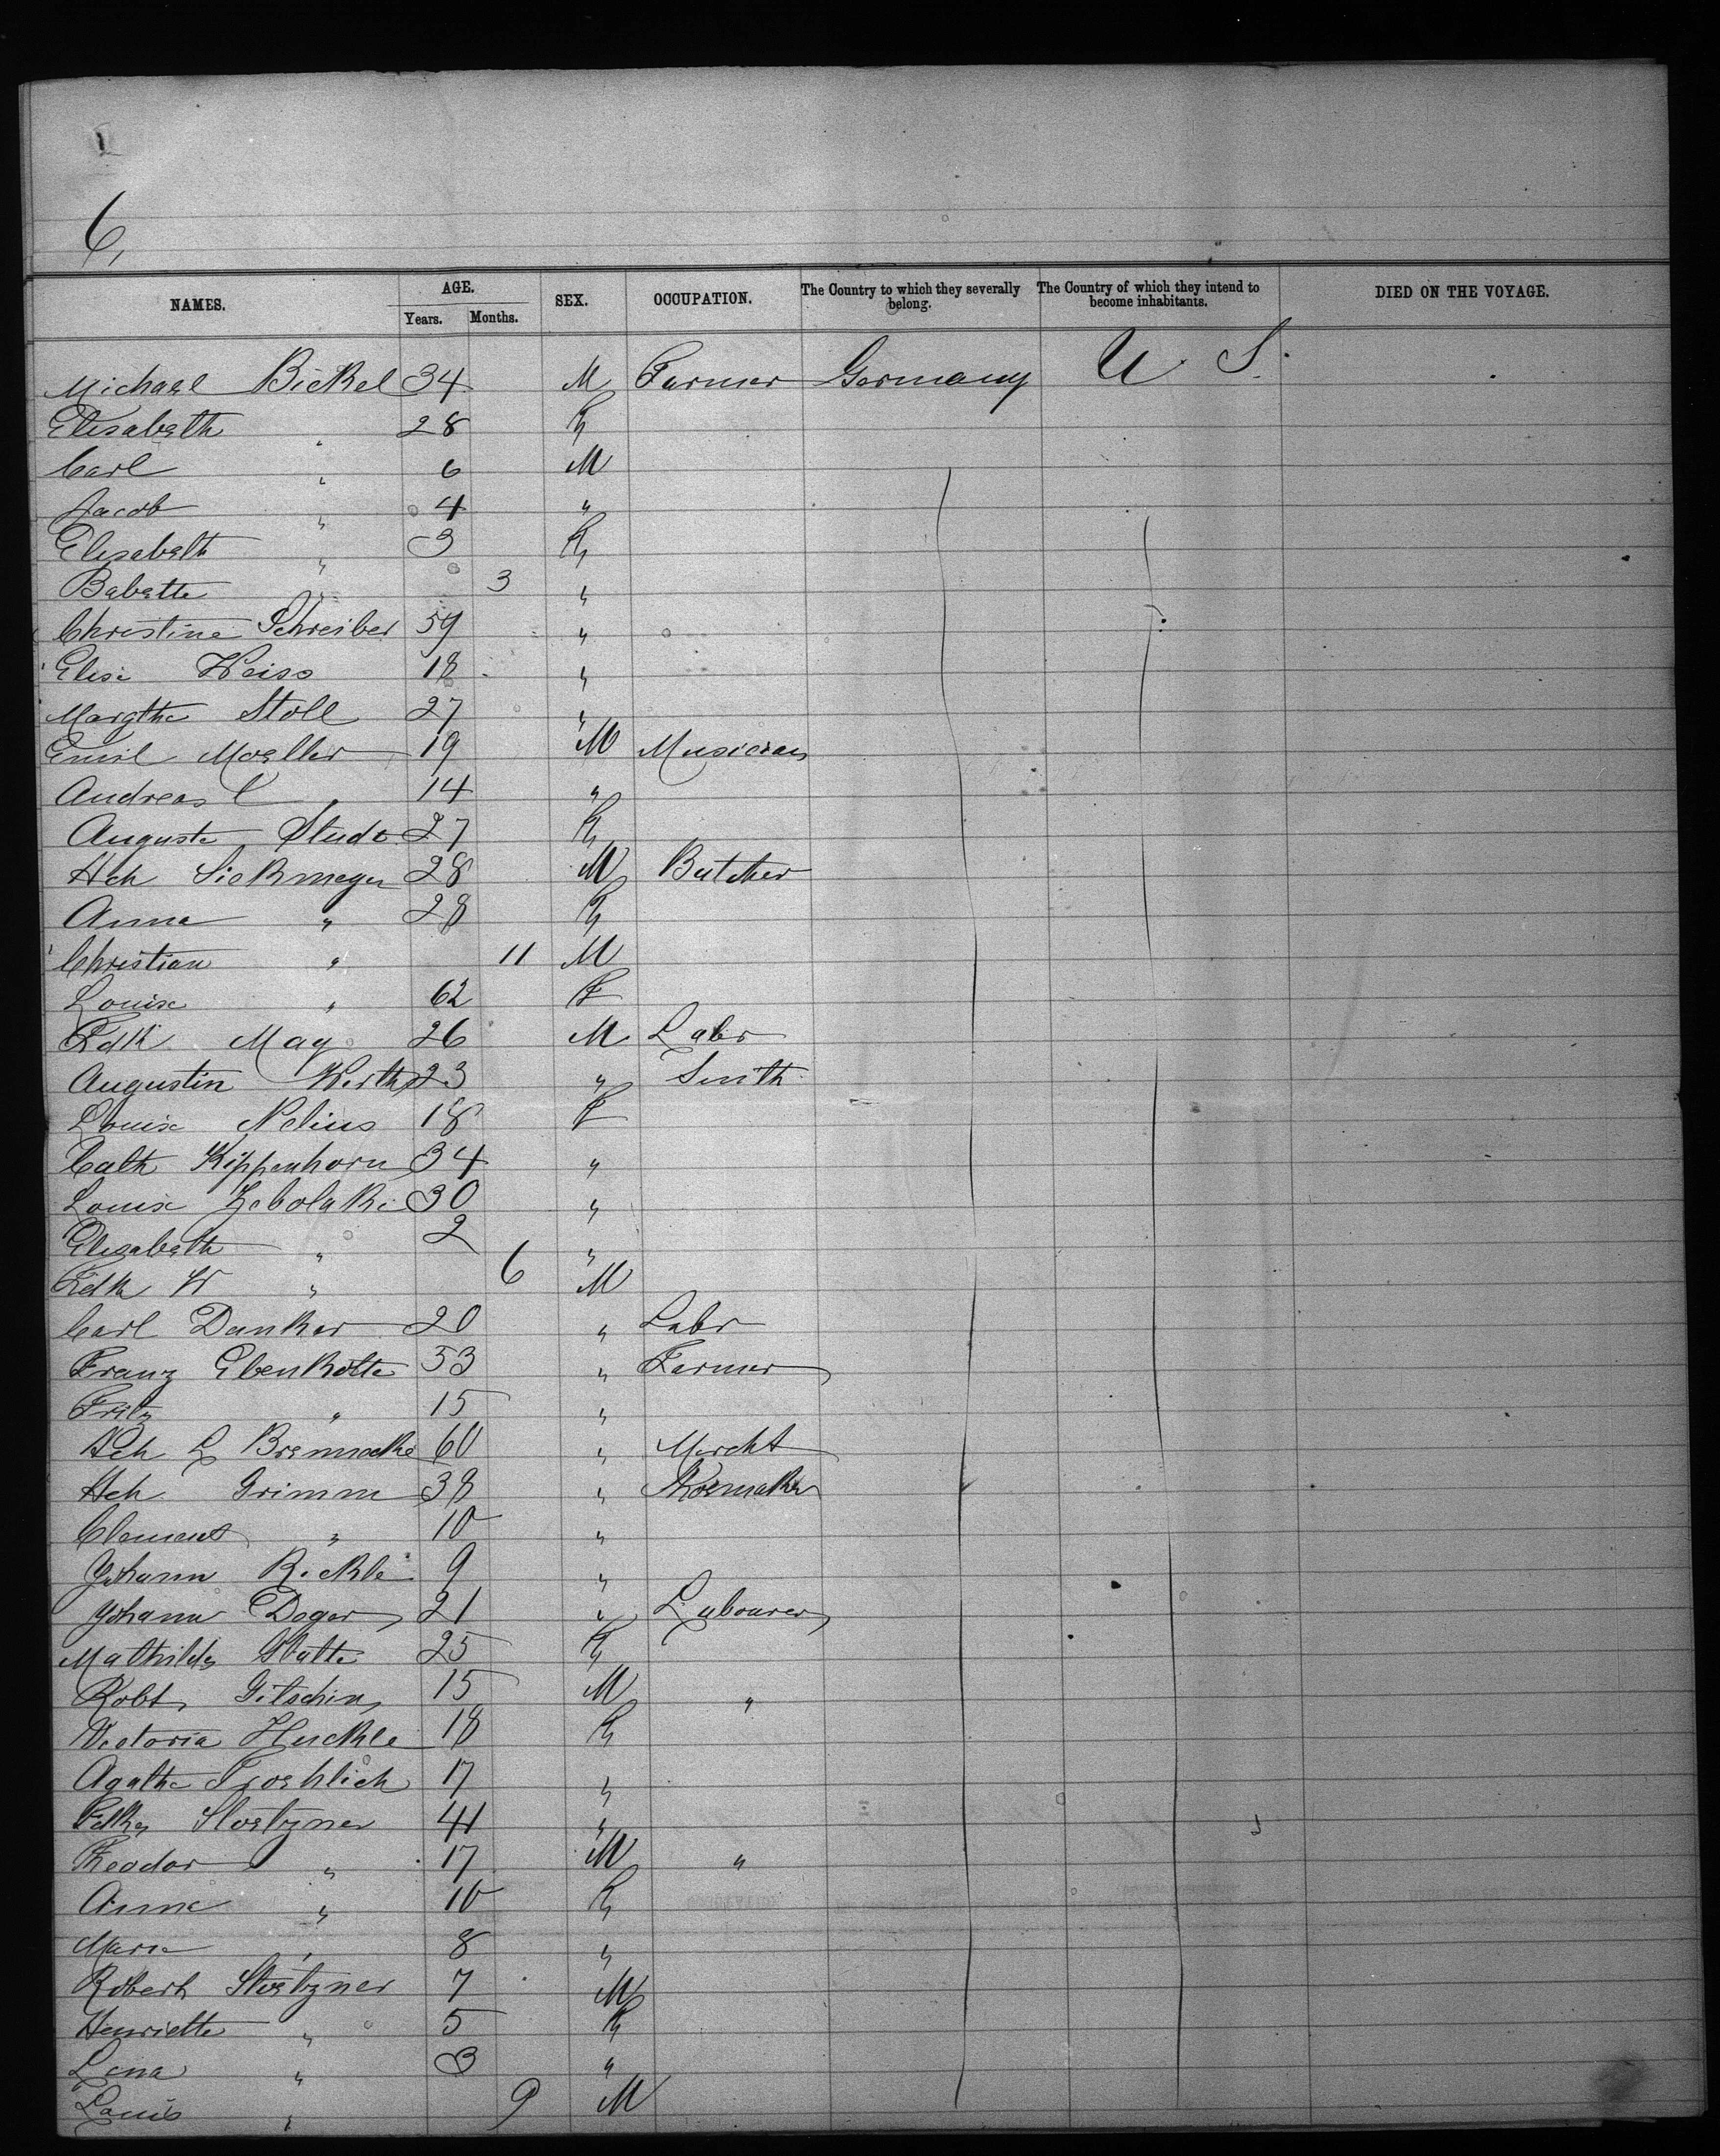 6,
NAMES. AGE. SEX. OCCUPATION. The Country to which they severally belong. The Country of which they intend to become inhabitants. DIED ON THE VOYAGE.
Years. Months.
Michael Bickel 34 M Farmer Germany U. S.
Elisabeth " 28 F
Carl " 6 M
Jacob " 4 "
Elisabeth " 3 F
Babette " 3 "
Christine Schreiber 59 "
Elise Weiss 18 "
Margthe Stoll 27 "
Emil Moeller 19 M Musician
Andreas C " 14 "
Auguste Studt 27 F
Hch Siekmeyer 28 M Butcher
Anna " 28 F
Christian " 11 M
Louise " 62 F
Fdk May 26 M Labr
Augustin Werth 23 " Smith
Louise Nelius 18 F
Cath Kippenhorn 34 "
Louise Zebolaki 30 "
Elisabeth " 2 "
Fdk W " 6 M
Carl Danker 20 " Labr
Franz Ebenkotte 53 " Farmer
Fritz " 15 "
Hch L Bremecke 60 " Mercht
Hch Grimm 38 " Shoemaker
Clemens " 10 "
Johann Rickli 9 "
Johann Doger 21 " Labourer
Mathilde Statte 25 F
Robt Gitschin 15 M "
Victoria Huckle 18 F
Agathe Froehlich 17 "
Fdke Stoetzner 41 "
Theodor " 17 M "
Anna " 10 F
Marie " 8 "
Robert Stoetzner 7 M
Henriette " 5 F
Lina " 3 "
Louis " 9 M